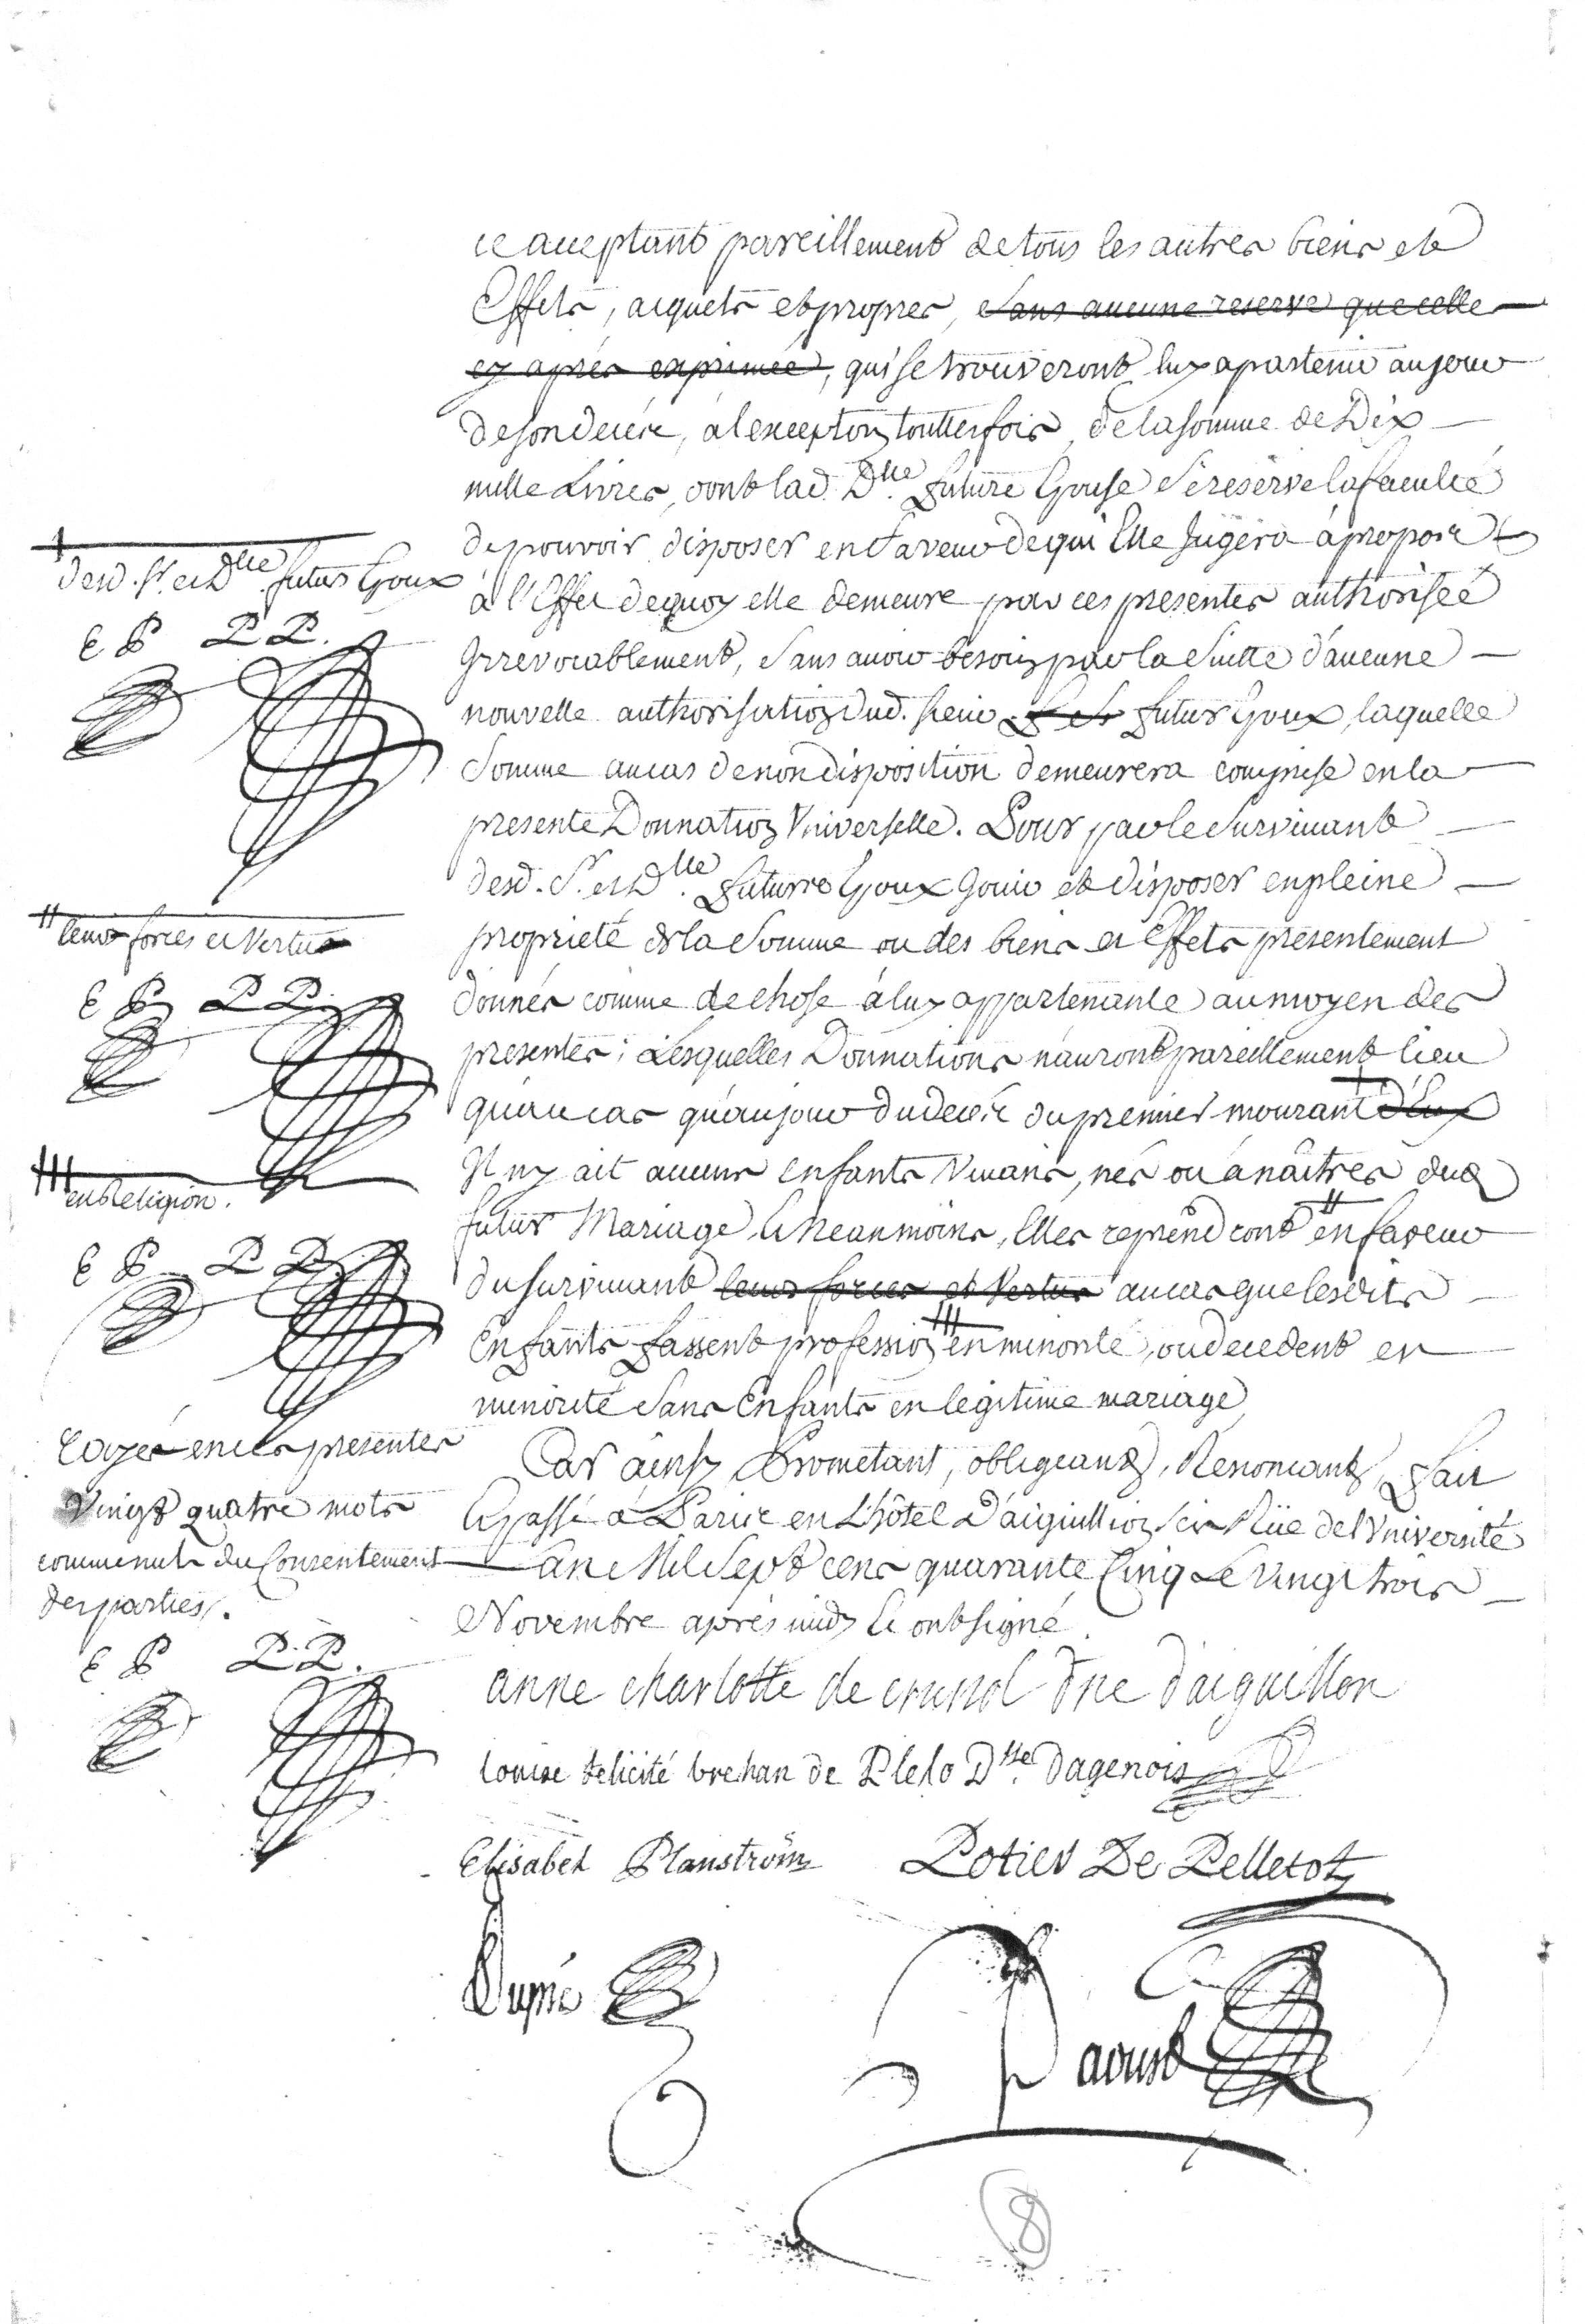 ce acceptant pareillement de tous les autres biens et
Effets, acquets et propres, sans aucune reserve que celle
cy aprés exprimée, qui se trouveront luy apartenir au jour
de son decéz, a l'exception touttesfois, de la somme de Dix
mille Livres, dont lad. Dlle. future Epouse se reserve la faculté
de pouvoir disposer en faveur de qui Elle Jugera à propos et
à l'Effet de quoy elle demeure par ces presentes authorisée
Irrevocablement, sans avoir besoin par la suitte d'aucune
nouvelle authorisation dud. sieur futur Epoux, laquelle
Somme au cas de non disposition demeurera comprise en la
presente Donnation Universelle. Pour par le Survivant
desd. Sr. et Dlle. future Epoux Jouir et disposer en pleine
proprieté de la Somme ou des biens et Effets presentement
donnés comme de chose à luy appartenante au moyen des
presentes; Lesquelles Donnations n'auront pareillement lieu
qu'au cas qu'au jour du decéz du premier mourant d'Eux
Il n'y ait aucuns enfants Vivans, nés ou à naîtres dud
futur Mariage, Et Neanmoins, Elles reprendront en faveur
du survivant leurs forces et Vertus au cas que lesdits
Enfants fassent profession en minorité, ou decedent en
minorité sans Enfants en legitime mariage
Car ainsy Prometant, obligeant, Renonçant, Fait
Et passé à Paris en L'hôtel D'aiguillion, sis Rüe de l'Université
L'an Mil Sept cens quarante Cinq Le Vingt trois
Novembre aprés midy Et ont signé.
anne charlotte de crussol dne d'aiguillon
Louise felicité brehan de Plelo Dsse. Dagenois
Elisabet Planström Potier De Pelletot
Dupré
aoust
desd. Sr. et Dlle. futurs Epoux
E P P.P.
leurs forces et Vertus
E P P P.
en Religion.
E P P P
Rayé en ces presentes
Vingt quatre mots
comme nuls du Consentement
des parties.
E P P.P.
8